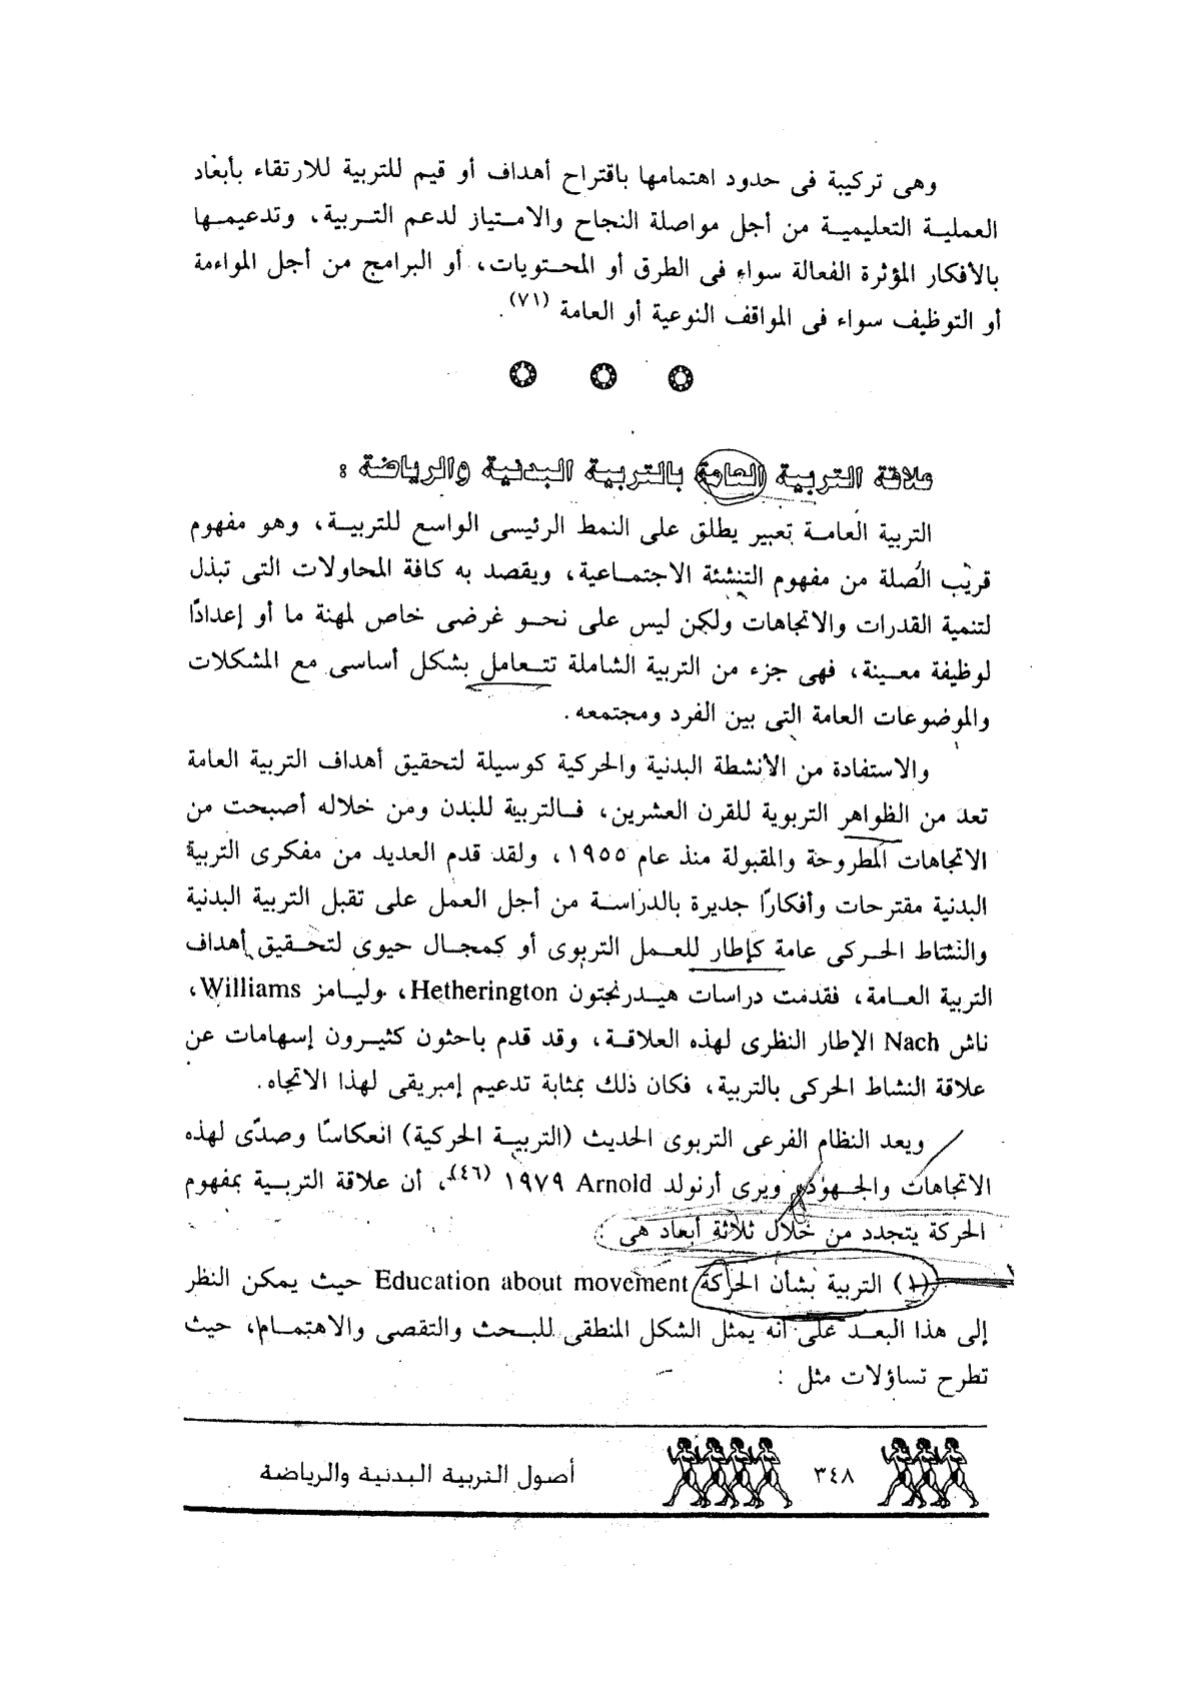 وهى تركيبة فى حدود اهتمامها باقتراح أهداف أو قيم للتربية للارتقاء بأبعاد
العملية التعليمية من أجل مواصلة النجاح والامتياز لدعم التربية، وتدعيمها
بالأفكار المؤثرة الفعالة سواء فى الطرق أو المحتويات، أو البرامج من أجل المواءمة
أو التوظيف سواء فى المواقف النوعية أو العامة (٧١).
علاقة التربية العامة بالتربية البدنية والرياضة :
التربية العامة تعبير يطلق على النمط الرئيسى الواسع للتربية، وهو مفهوم
قريب الصلة من مفهوم التنشئة الاجتماعية، ويقصد به كافة المحاولات التى تبذل
لتنمية القدرات والاتجاهات ولكن ليس على نحو غرضى خاص لمهنة ما أو إعدادًا
لوظيفة معينة، فهى جزء من التربية الشاملة تتعامل بشكل أساسى مع المشكلات
والموضوعات العامة التى بين الفرد ومجتمعه.
والاستفادة من الأنشطة البدنية والحركية كوسيلة لتحقيق أهداف التربية العامة
تعد من الظواهر التربوية للقرن العشرين، فالتربية للبدن ومن خلاله أصبحت من
الاتجاهات المطروحة والمقبولة منذ عام ١٩٥٥، ولقد قدم العديد من مفكرى التربية
البدنية مقترحات وأفكارًا جديرة بالدراسة من أجل العمل على تقبل التربية البدنية
والنشاط الحركى عامة كإطار للعمل التربوى أو كمجال حيوى لتحقيق أهداف
التربية العامة، فقدمت دراسات هيدرنجتون Hetherington، وليامز Williams،
ناش Nach الإطار النظرى لهذه العلاقة، وقد قدم باحثون كثيرون إسهامات عن
علاقة النشاط الحركى بالتربية، فكان ذلك بمثابة تدعيم إمبريقى لهذا الاتجاه.
ويعد النظام الفرعى التربوى الحديث (التربية الحركية) انعكاسًا وصدًى لهذه
الاتجاهات والجهود، ويرى أرنولد Arnold ١٩٧٩ (٤٦)، أن علاقة التربية بمفهوم
الحركة يتجدد من خلال ثلاثة أبعاد هى :
(١) التربية بشأن الحركة Education about movement حيث يمكن النظر
إلى هذا البعد على أنه يمثل الشكل المنطقى للبحث والتقصى والاهتمام، حيث
تطرح تساؤلات مثل :
٣٤٨ أصول التربية البدنية والرياضة